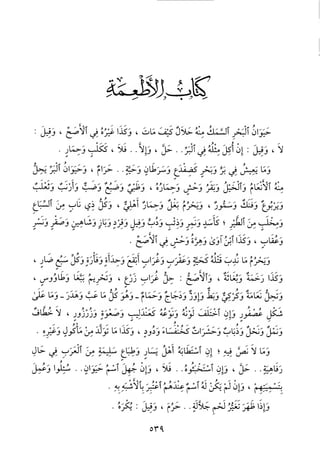 كتاب الأطعمة
حيوان البحر السمك منه حلال كيف مات ، وكذا غيره في الأصح ، وقيل :
لا ، وقيل : إن أكل مثله في البر .. حل ، وإلا .. فلا ، ككلب وحمار .
وما يعيش في بر وبحر كضفدع وسرطان وحية .. حرام ، وحيوان البر يحل
منه الأنعام والخيل وبقر وحش وحماره ، وظبي وضبع وضب وأرنب وثعلب
ويربوع وفنك وسمور ، ويحرم بغل وحمار أهلي ، وكل ذي ناب من السباع
ومخلب من الطير ؛ كأسد ونمر وذئب ودب وفيل وقرد وباز وشاهين وصقر ونسر
وعقاب ، وكذا ابن آوى وهرة وحش في الأصح .
ويحرم ما ندب قتله كحية وعقرب وغراب أبقع وحدأة وفأرة وكل سبع ضار ،
وكذا رخمة وبغاثة ، والأصح : حل غراب زرع ، وتحريم ببغا وطاووس ،
وتحل نعامة وكركي وبط وإوز ودجاج وحمام - وهو كل ما عب وهدر - وما على
شكل عصفور وإن اختلف لونه ونوعه كعندليب وصعوة وزرزور ، لا خطاف
ونمل ونحل وذباب وحشرات كخنفساء ودود ، وكذا ما تولد من مأكول وغيره .
وما لا نص فيه ؛ إن استطابه أهل يسار وطباع سليمة من العرب في حال
رفاهية .. حل ، وإن استخبثوه .. فلا ، وإن جهل اسم حيوان .. سئلوا وعمل
بتسميتهم ، وإن لم يكن له اسم عندهم اعتبر بالأشبه به .
وإذا ظهر تغير لحم جلالة .. حرم ، وقيل : يكره .
٥٣٩